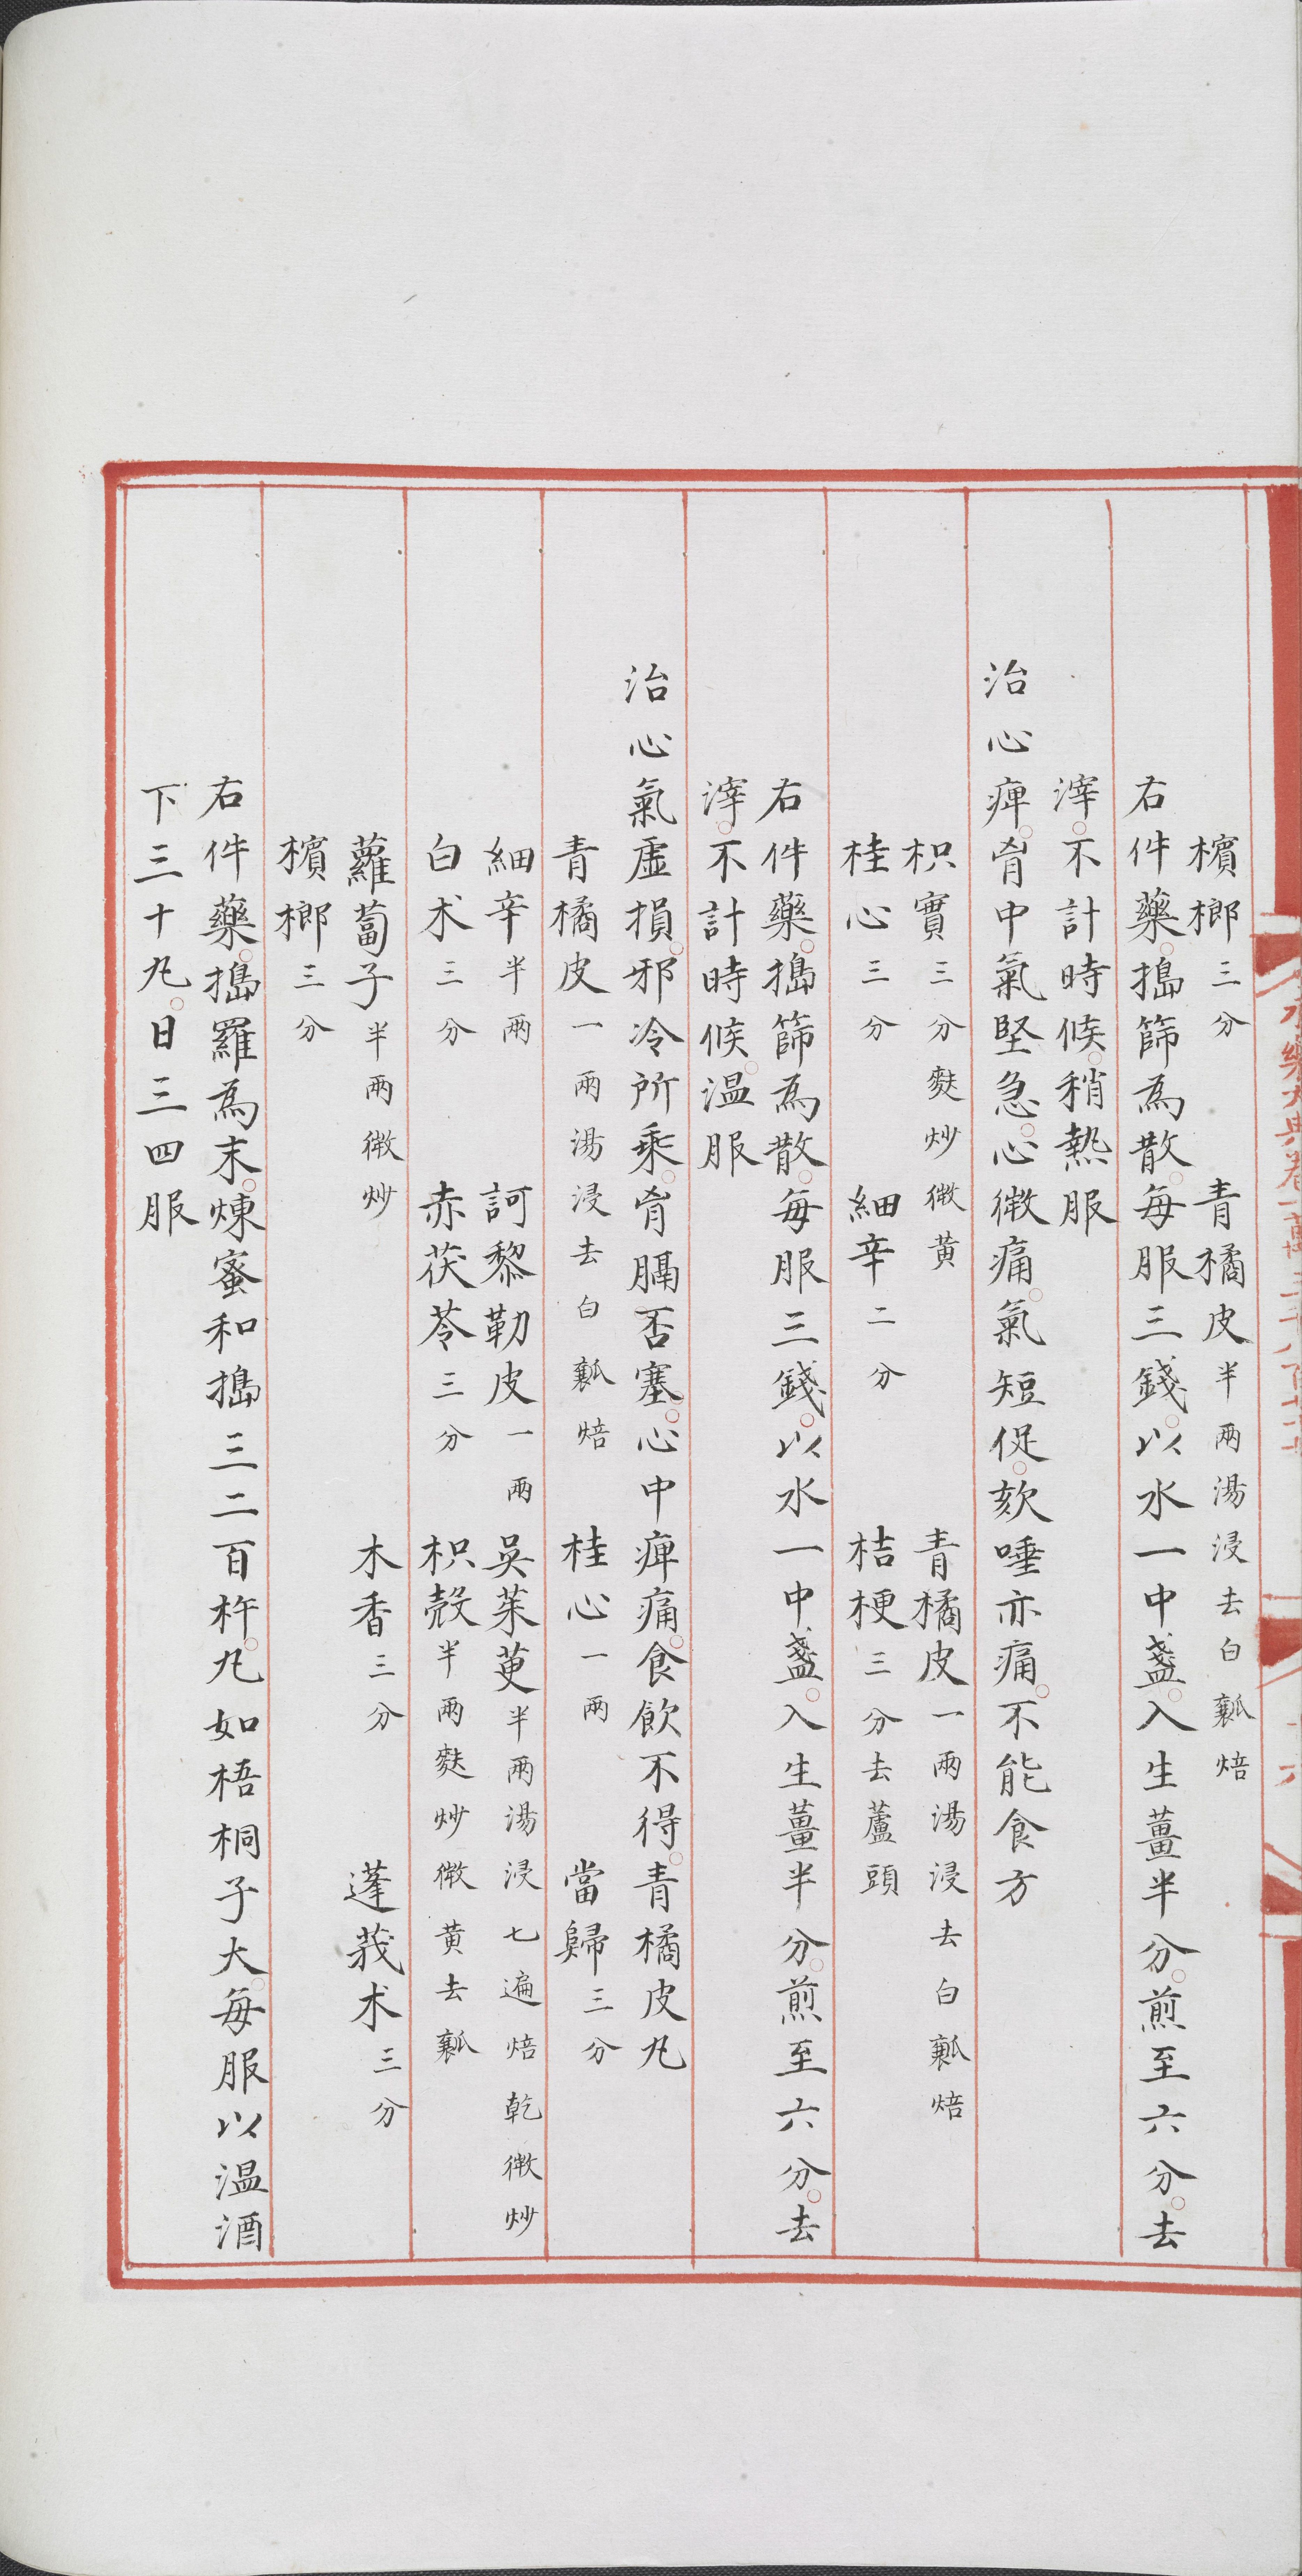 檳榔三分 青橘皮半兩湯浸去白瓤焙
右件藥。搗篩為散。每服三錢。以水一中盞。入生薑半分。煎至六分。去
滓。不計時候。稍熱服
治心痺。胷中氣堅急。心微痛。氣短促。欬唾亦痛。不能食方
枳實三分麩炒微黃 青橘皮一兩湯浸去白瓤焙
桂心三分 細辛二分 桔梗三分去蘆頭
右件藥。搗篩為散。每服三錢。以水一中盞。入生薑半分。煎至六分。去
滓。不計時候。温服
治心氣虛損。邪冷所乘。胷膈否塞。心中痺痛。食飲不得。青橘皮丸
青橘皮一兩湯浸去白瓤焙 桂心一兩 當歸三分
細辛半兩 訶黎勒皮一兩 吳茱萸半兩湯浸七遍焙乾微炒
白术三分 赤茯苓三分 枳殼半兩麩炒微黃去瓤
蘿蔔子半兩微炒 木香三分 蓬莪术三分
檳榔三分
右件藥。搗羅為末。煉蜜和搗三二百杵。丸如梧桐子大。每服以温酒
下三十丸。日三四服